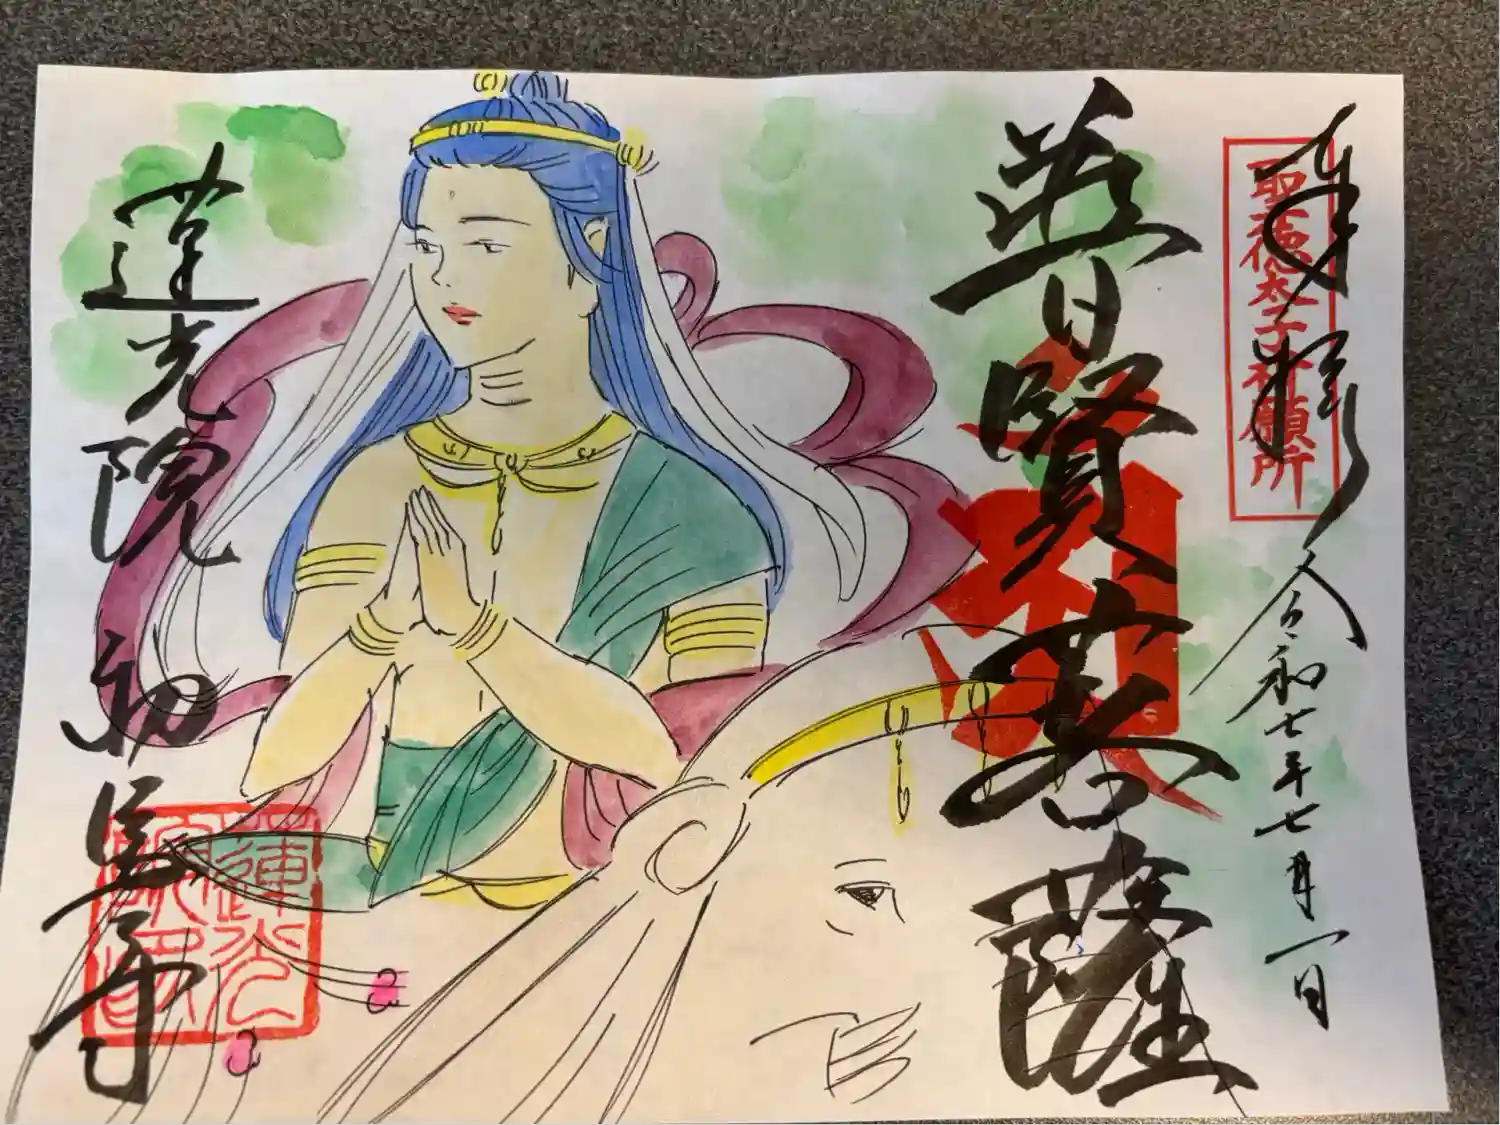 奉拝
令和七年七月一日
聖徳太子祈願所
普賢菩薩
蓮光院
初馬寺